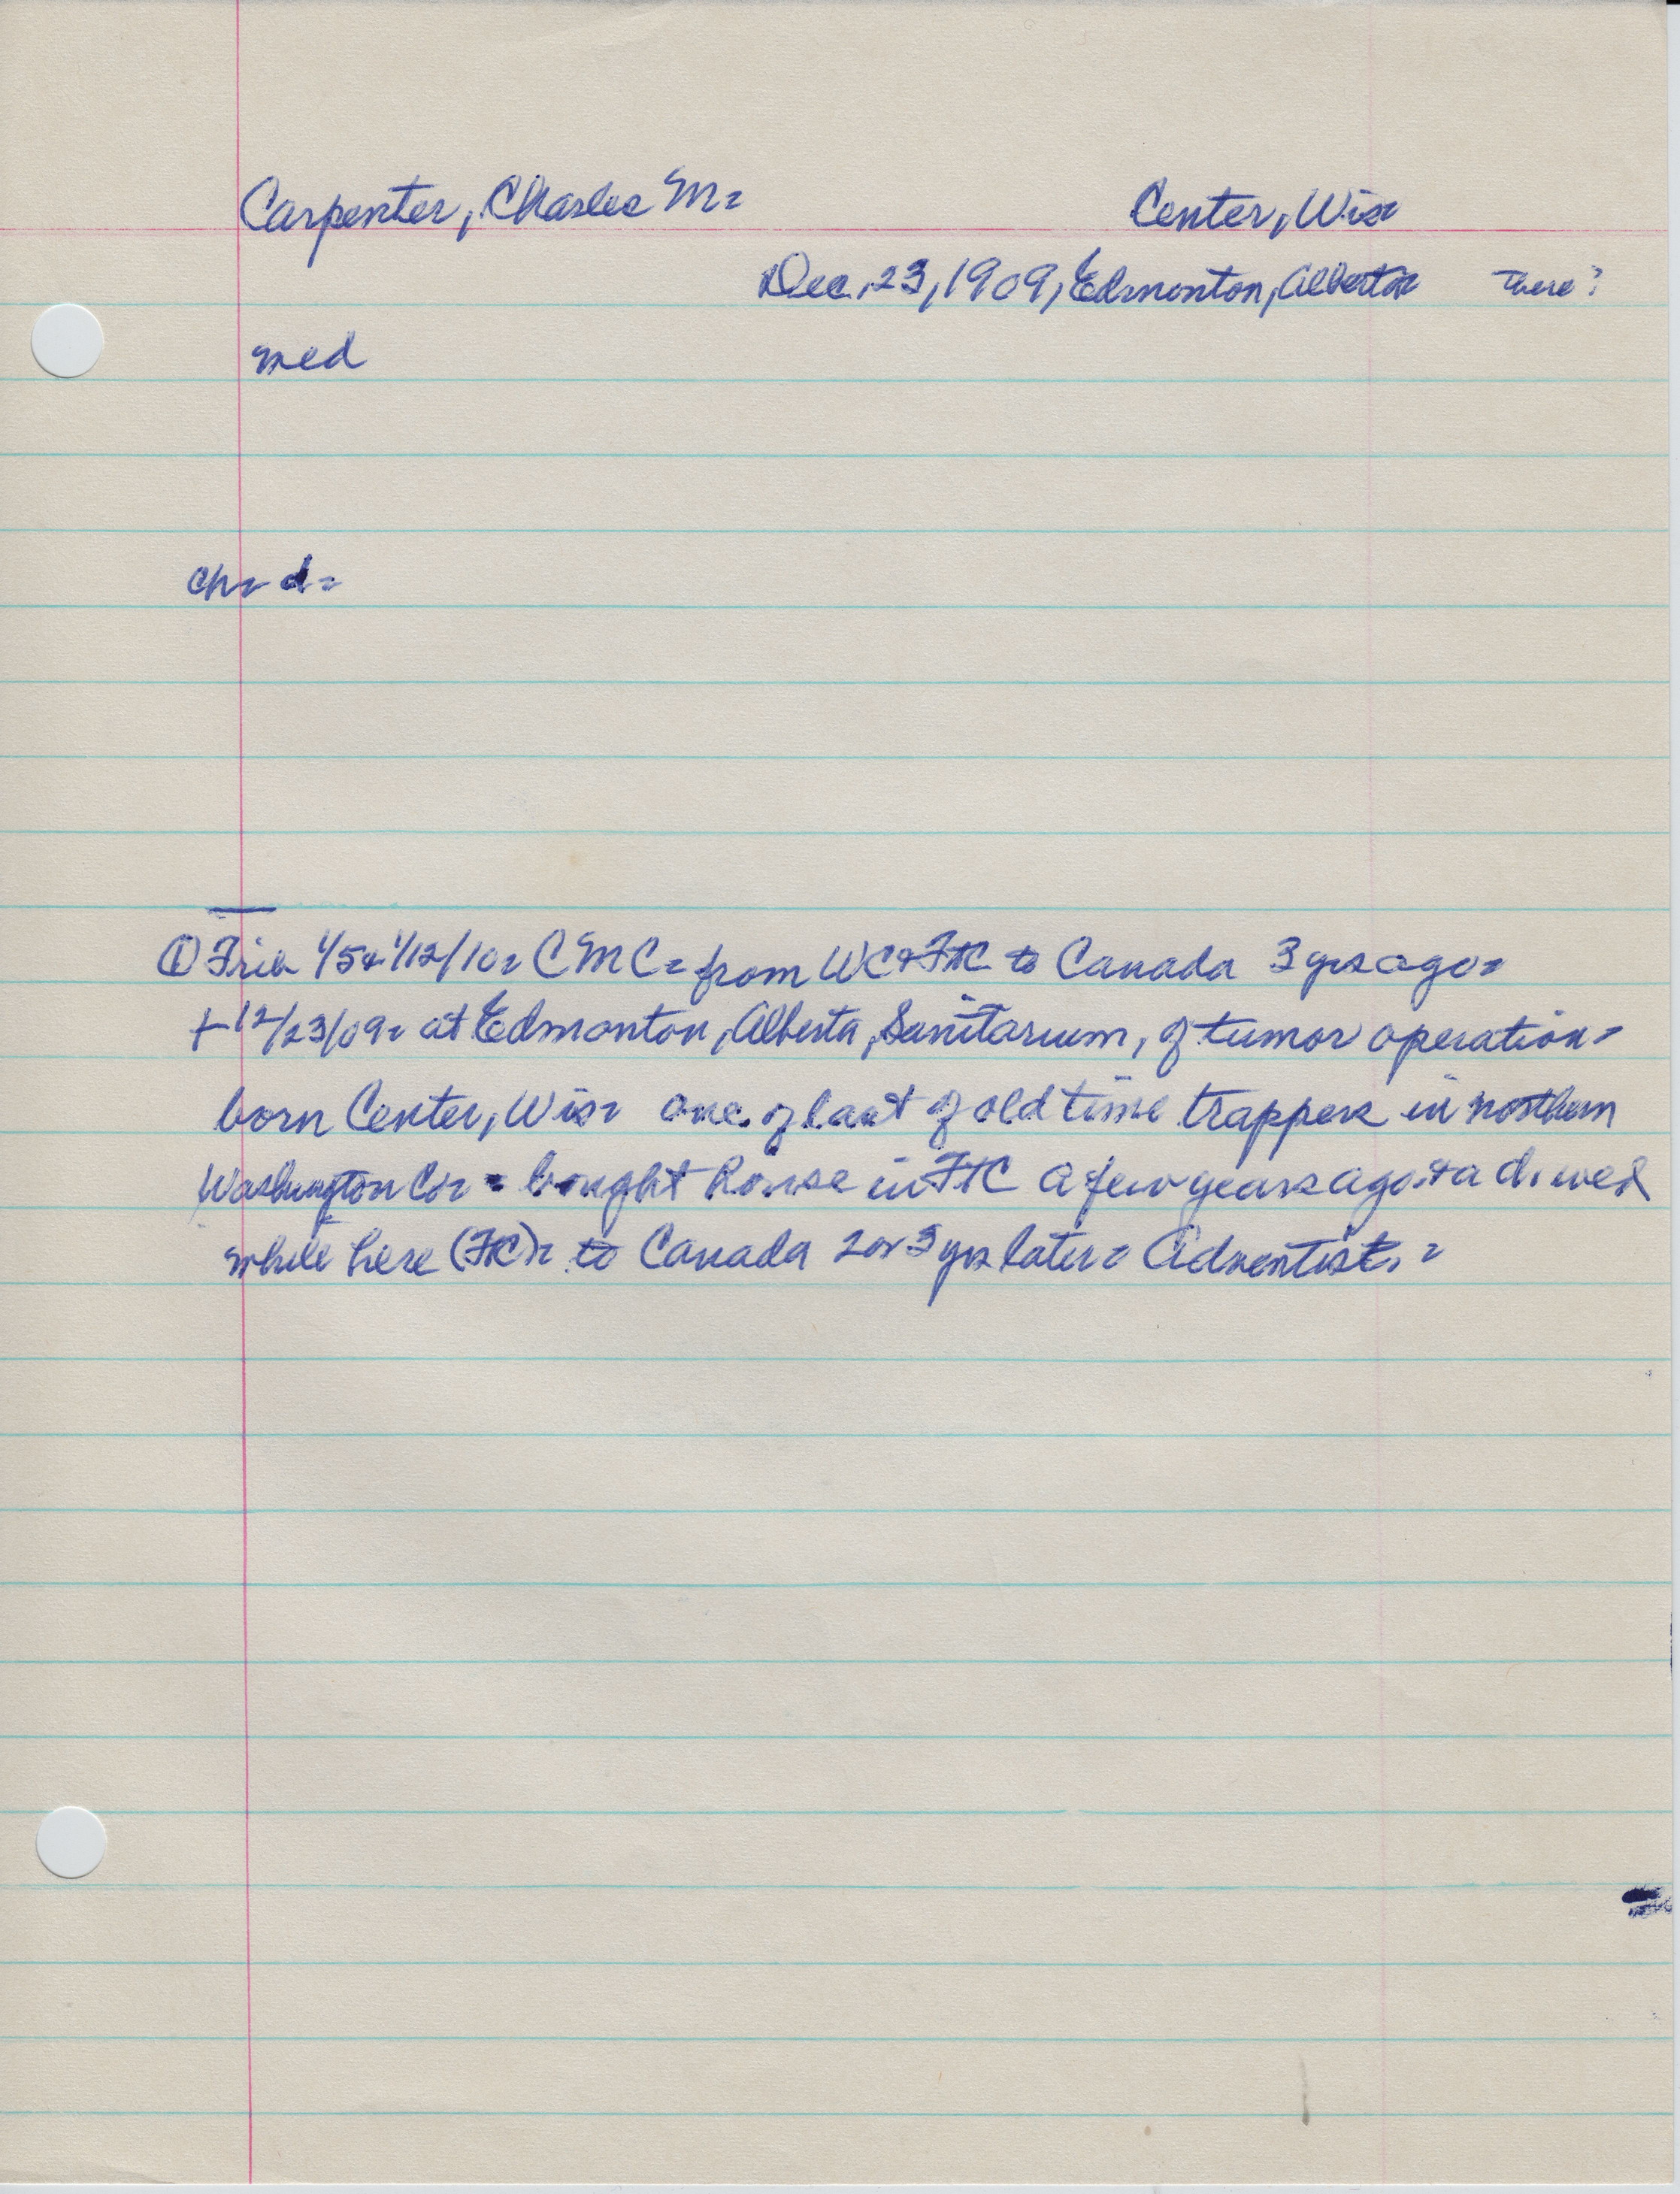 Carpenter, Charles M. Center, Wis.
Dec. 23, 1909, Edmonton, Alberta There?
med
ch. d.
① 1/5 & 1/12/10. C M C. from WC & FtC to Canada 3 yrs ago.
+12/23/09. at Edmonton, Alberta, Sanitarium, of tumor operation.
born Center, Wis. one of last of old time trappers in northern
Washington Co. bought house in FtC a few years ago. & a d. wed
while here (FtC). to Canada 2 or 3 yrs later. Adventist.